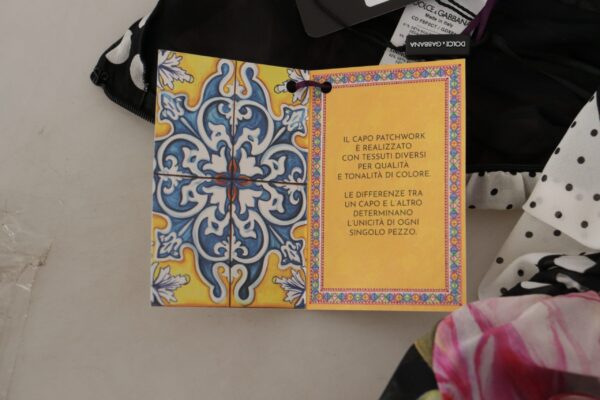 DOLCE & GABBANA
Made in Italy
DOLCE & GABBANA
IL CAPO PATCHWORK
È REALIZZATO
CON TESSUTI DIVERSI
PER QUALITÀ
E TONALITÀ DI COLORE.
LE DIFFERENZE TRA
UN CAPO E L'ALTRO
DETERMINANO
L'UNICITÀ DI OGNI
SINGOLO PEZZO.